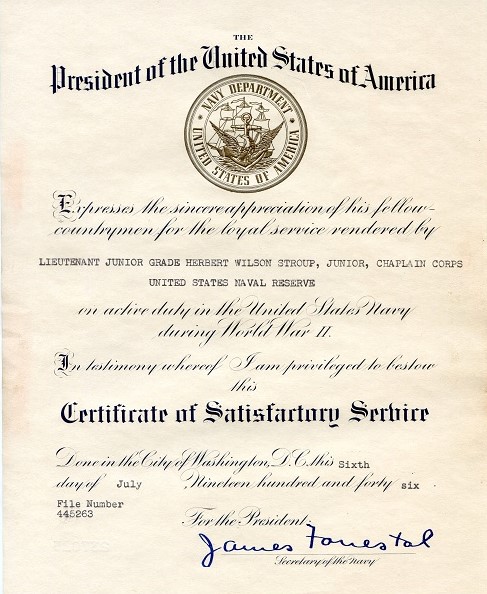 THE
President of the United States of America
NAVY DEPARTMENT
UNITED STATES OF AMERICA
Expresses the sincere appreciation of his fellow-
countrymen for the loyal service rendered by
LIEUTENANT JUNIOR GRADE HERBERT WILSON STROUP, JUNIOR, CHAPLAIN CORPS
UNITED STATES NAVAL RESERVE
on active duty in the United States Navy
during World War II.
In testimony whereof I am privileged to bestow
this
Certificate of Satisfactory Service
Done in the City of Washington, D.C. this Sixth
day of July Nineteen hundred and forty six
File Number
445263
For the President.
James Forrestal
Secretary of the Navy